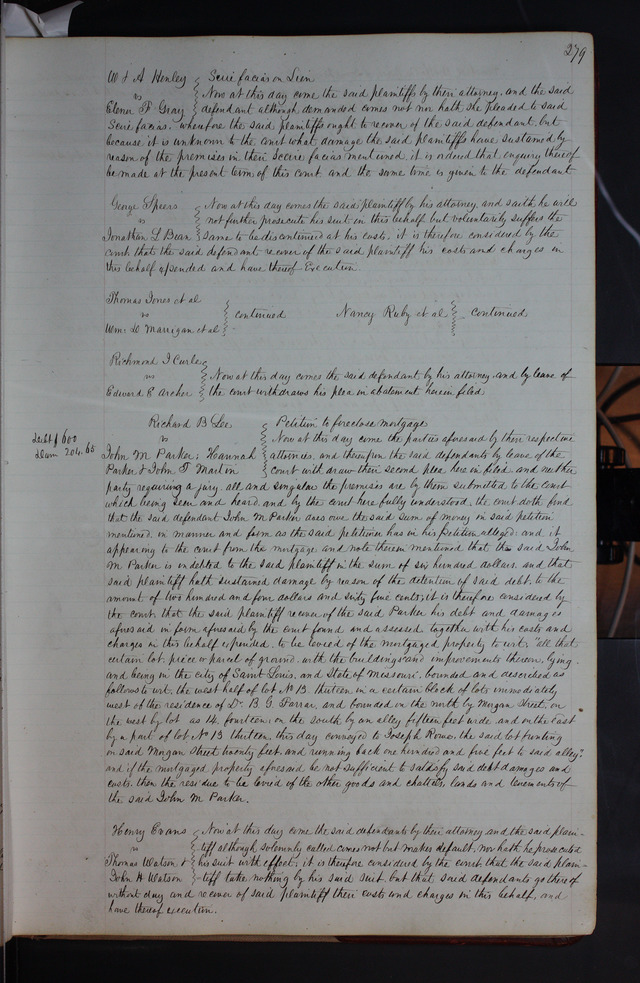 279
W & A Henley } Scire facias on Lien
vs } Now at this day come the said plaintiffs by their attorney, and the said
Elenor F Gray } defendant although demanded comes not nor hath she pleaded to said
Scire facias, wherefore the said plaintiffs ought to recover of the said defendant, but
because it is unknown to the court what damage the said plaintiffs have sustained by
reason of the premises in their Scire facias mentioned, it is ordered that enquiry thereof
be made at the present term of this court and the same time is given to the defendant
George Speers } Now at this day comes the said plaintiff by his attorney, and saith he will
vs } not further prosecute his suit in this behalf but voluntarily suffers the
Jonathan L Bean } same to be discontinued at his costs, it is therefore considered by the
court that the said defendant recover of the said plaintiff his costs and charges in
this behalf expended and have thereof Execution.
Thomas Jones et al
vs } continued Nancy Ruby et al } continued
Wm D Marrigan et al
Richmond J Curle
vs } Now at this day comes the said defendant by his attorney, and by leave of
Edward E Archer } the court withdraws his plea in abatement herein filed
Richard B Lee } Petition to foreclose mortgage
Debt $600
vs } Now at this day come the parties aforesaid by their respective
Dam 204.65
John M Parker, Hannah } attornies, and thereupon the said defendants by leave of the
Parker & John T Martin } court withdraw their second plea herein filed, and neither
party requiring a jury, all and singular the premises are by them submitted to the court
which being seen and heard, and by the court here fully understood, the court doth find
that the said defendant John M Parker does owe the said sum of money in said petition
mentioned, in manner and form as the said petitioner has in his Petition alleged: and it
appearing to the court from the mortgage and note therein mentioned that the said John
M Parker is indebted to the said plaintiff in the sum of six hundred dollars, and that
said plaintiff hath sustained damage by reason of the detention of said debt, to the
amount of two hundred and four dollars and sixty five cents; it is therefore considered by
the court, that the said plaintiff recover of the said Parker his debt and damages
aforesaid in form aforesaid by the court found and assessed together with his costs and
charges in this behalf expended, to be levied of the mortgaged property to wit, "all that
certain lot, piece or parcel of ground, with the buildings and improvements thereon, lying
and being in the city of Saint Louis, and State of Missouri, bounded and described as
follows to wit, the west half of lot No 13, thirteen, in a certain block of lots immediately
west of the residence of Dr. B. G. Farrar, and bounded on the north by Morgan Street, on
the west by lot as 14 fourteen, on the South by an alley fifteen feet wide, and on the East
by a part of lot No 13 thirteen, this day conveyed to Joseph Rowe, the said lot fronting
on said Morgan Street twenty feet, and running back one hundred and five feet to said alley",
and if the mortgaged property aforesaid be not sufficient to satisfy said debt damages and
costs, then the residue to be levied of the other goods and chattels, lands and tenements of
the said John M Parker.
Henry Evans } Now at this day come the said defendants by their attorney and the said plain-
vs } tiff although solemnly called comes not but makes default, nor hath he prosecuted
Thomas Watson & } his suit with effect; it is therefore considered by the court that the said plain-
John H Watson } tiff take nothing by his said suit, but that said defendants go thereof
without day and recover of said plaintiff their costs and charges in this behalf, and
have thereof execution.